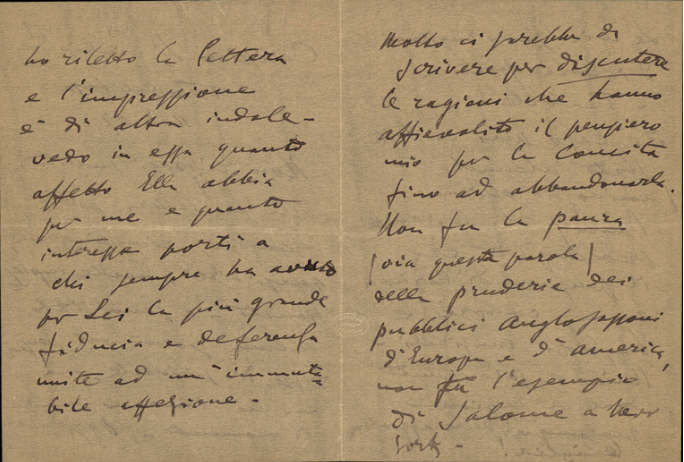 ho riletto la lettera
e l'impressione
è di altra indole -
vedo in essa quanto
affetto Ella abbia
per me e quanto
interesse porti a
chi sempre ha avuto
per Lei la più grande
fiducia e deferenza
unite ad un'immuta=
bile affezione -
Molto ci sarebbe da
scrivere per discutere
le ragioni che hanno
affievolito il pensiero
mio per la Conchita
fino ad abbandonarla.
Non fu la paura
(via questa parola)
della pruderie dei
pubblici anglosassoni
d'Europa e d'America,
non fu l'esempio
di Salome a New
York -